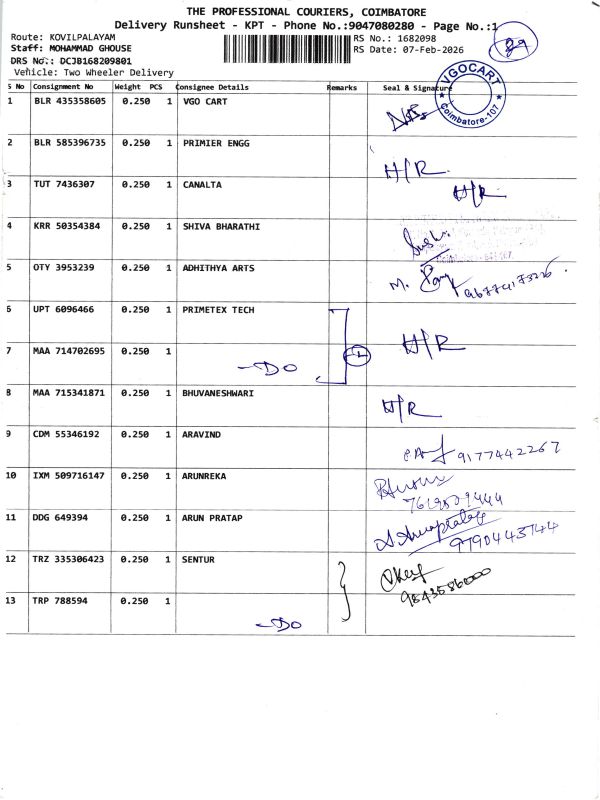 THE PROFESSIONAL COURIERS, COIMBATORE
Delivery Runsheet - KPT - Phone No.:9047080280 - Page No.:1
Route: KOVILPALAYAM
RS No.: 1682098
Staff: MOHAMMAD GHOUSE
RS Date: 07-Feb-2026
DRS No.: DCJB168209801
Vehicle: Two Wheeler Delivery
S No Consignment No Weight PCS Consignee Details Remarks Seal & Signature
VGOCART
Coimbatore-107
1 BLR 435358605 0.250 1 VGO CART
2 BLR 585396735 0.250 1 PRIMIER ENGG H/R
3 TUT 7436307 0.250 1 CANALTA H/R
4 KRR 50354384 0.250 1 SHIVA BHARATHI
5 OTY 3953239 0.250 1 ADHITHYA ARTS M.
6 UPT 6096466 0.250 1 PRIMETEX TECH H/R
7 MAA 714702695 0.250 1 -DO
8 MAA 715341871 0.250 1 BHUVANESHWARI H/R
9 CDM 55346192 0.250 1 ARAVIND 9177442267
10 IXM 509716147 0.250 1 ARUNREKA
11 DDG 649394 0.250 1 ARUN PRATAP
12 TRZ 335306423 0.250 1 SENTUR
13 TRP 788594 0.250 1 -DO